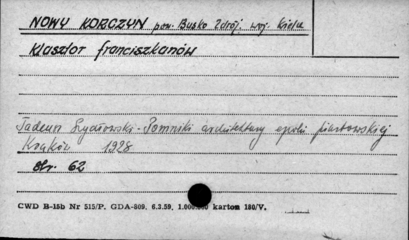 NOWY KORCZYN pow. Busko Zdrój, woj. Kielce
Klasztor franciszkanów
Tadeusz Szydłowski - Pomniki architektury epoki piastowskiej
Kraków 1928
str. 62
CWD B-15b Nr 515/P. GDA-809. 6.3.59. 1.000.000 karton 180/V.